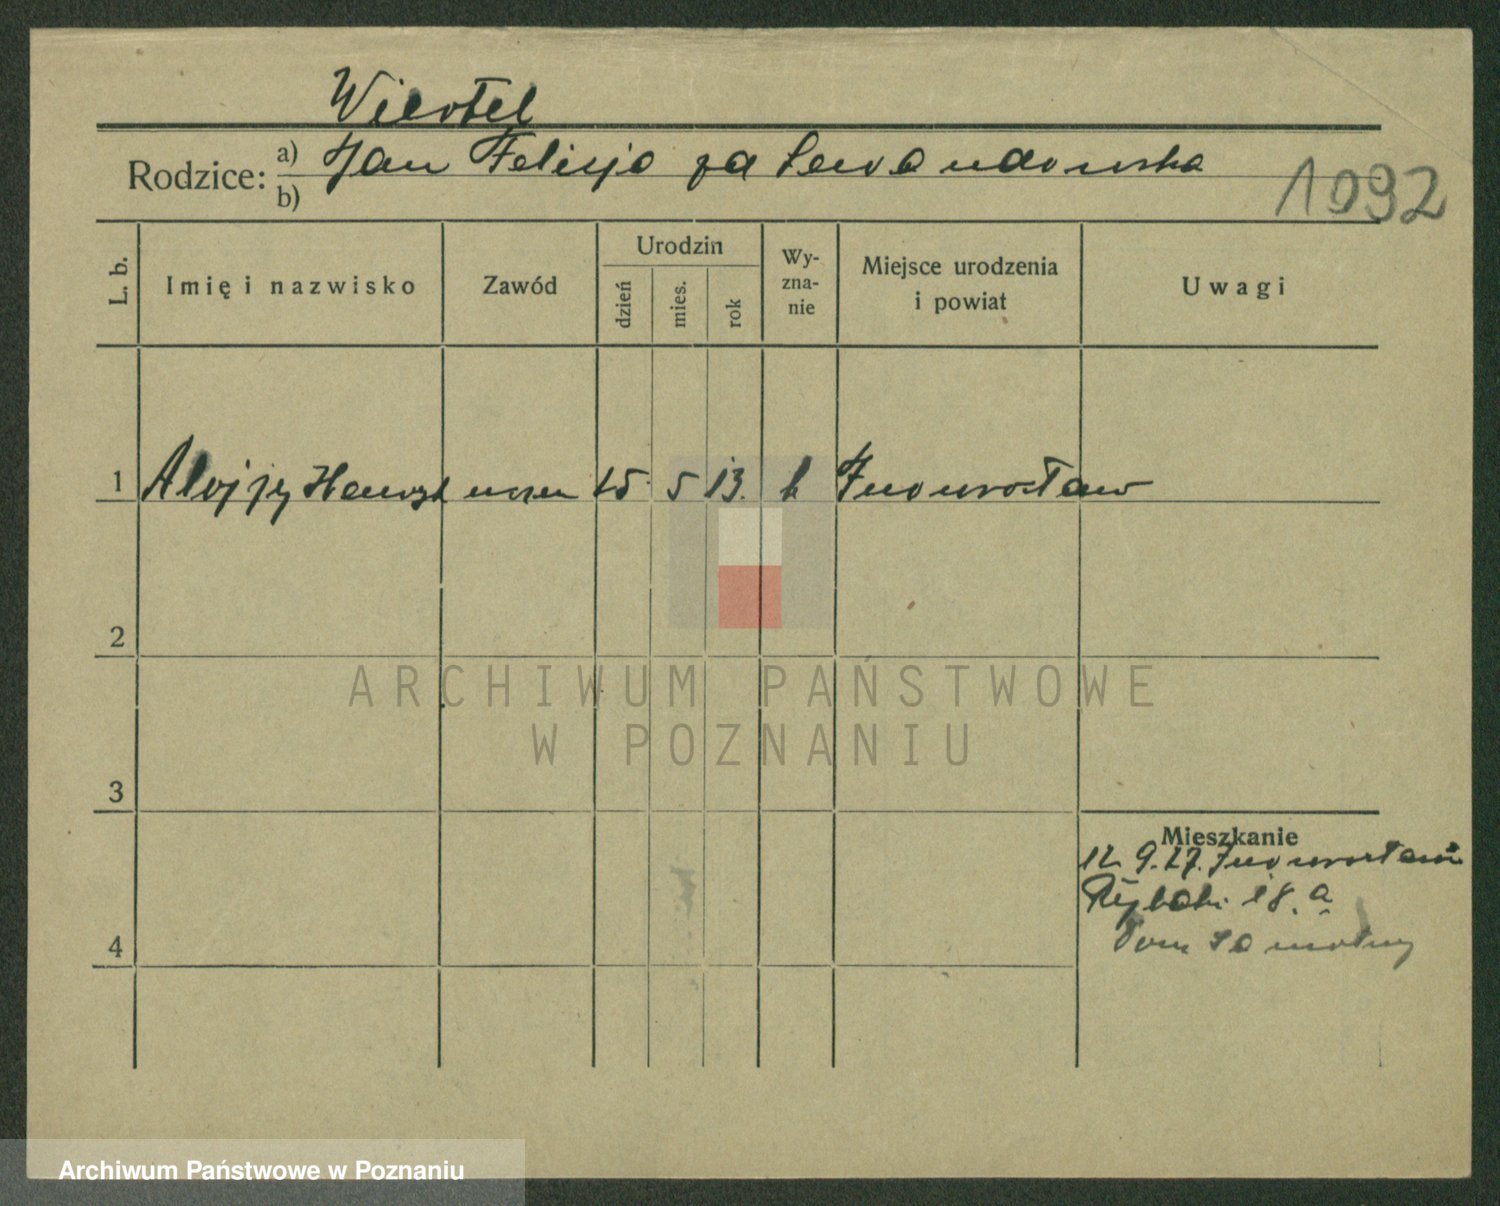 Wiertel
Rodzice: a) Jan Felicja za Lewandowska
b)
1092
L. b.
Imię i nazwisko
Zawód
Urodzin
dzień
mies.
rok
Wy-
zna-
nie
Miejsce urodzenia
i powiat
Uwagi
1 Alojzy uczeń 15 5 13. k Inowrocław
2
ARCHIWUM PAŃSTWOWE
W POZNANIU
3
Mieszkanie
12 9.27. Inowrocław
18. a
Dom
4
Archiwum Państwowe w Poznaniu